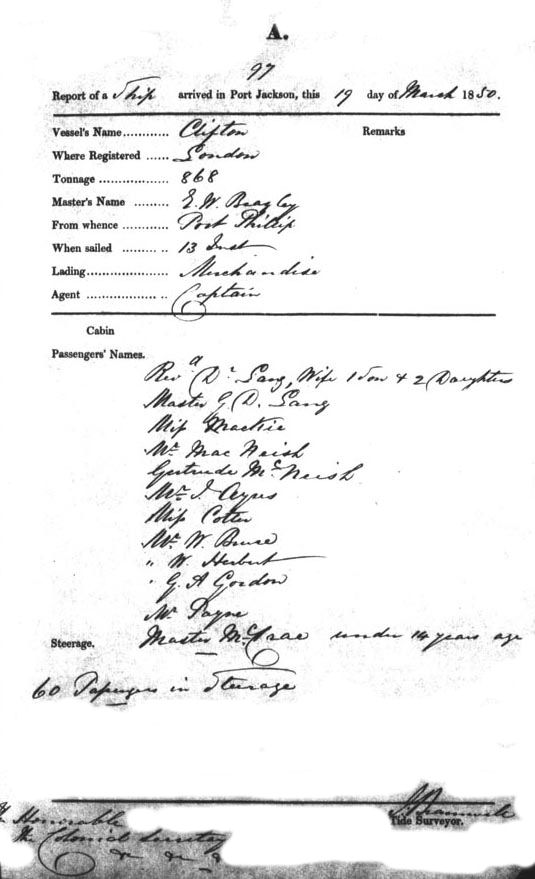 A.
97
Report of a Ship arrived in Port Jackson, this 19 day of March 1850.
Vessel's Name............ Clifton Remarks
Where Registered ...... London
Tonnage .................. 868
Master's Name ......... E. W. Beazley
From whence ............ Port Phillip
When sailed ............ 13 Inst
Lading..................... Merchandise
Agent ..................... Captain
Cabin
Passengers' Names.
Revd Dr Lang, Wife 1 Son & 2 Daughters
Master G D. Lang
Miss Mackie
Mr Mac Neish
Gertrude Mc Neish
Mr J. Ayres
Miss Cotter
Mr W. Bruce
" W. Herbert
" G. A Gordon
Mr Payne
Steerage. Master McCrae under 14 years age
60 Passengers in Steerage
Tide Surveyor.
The Honorable
The Colonial Secretary